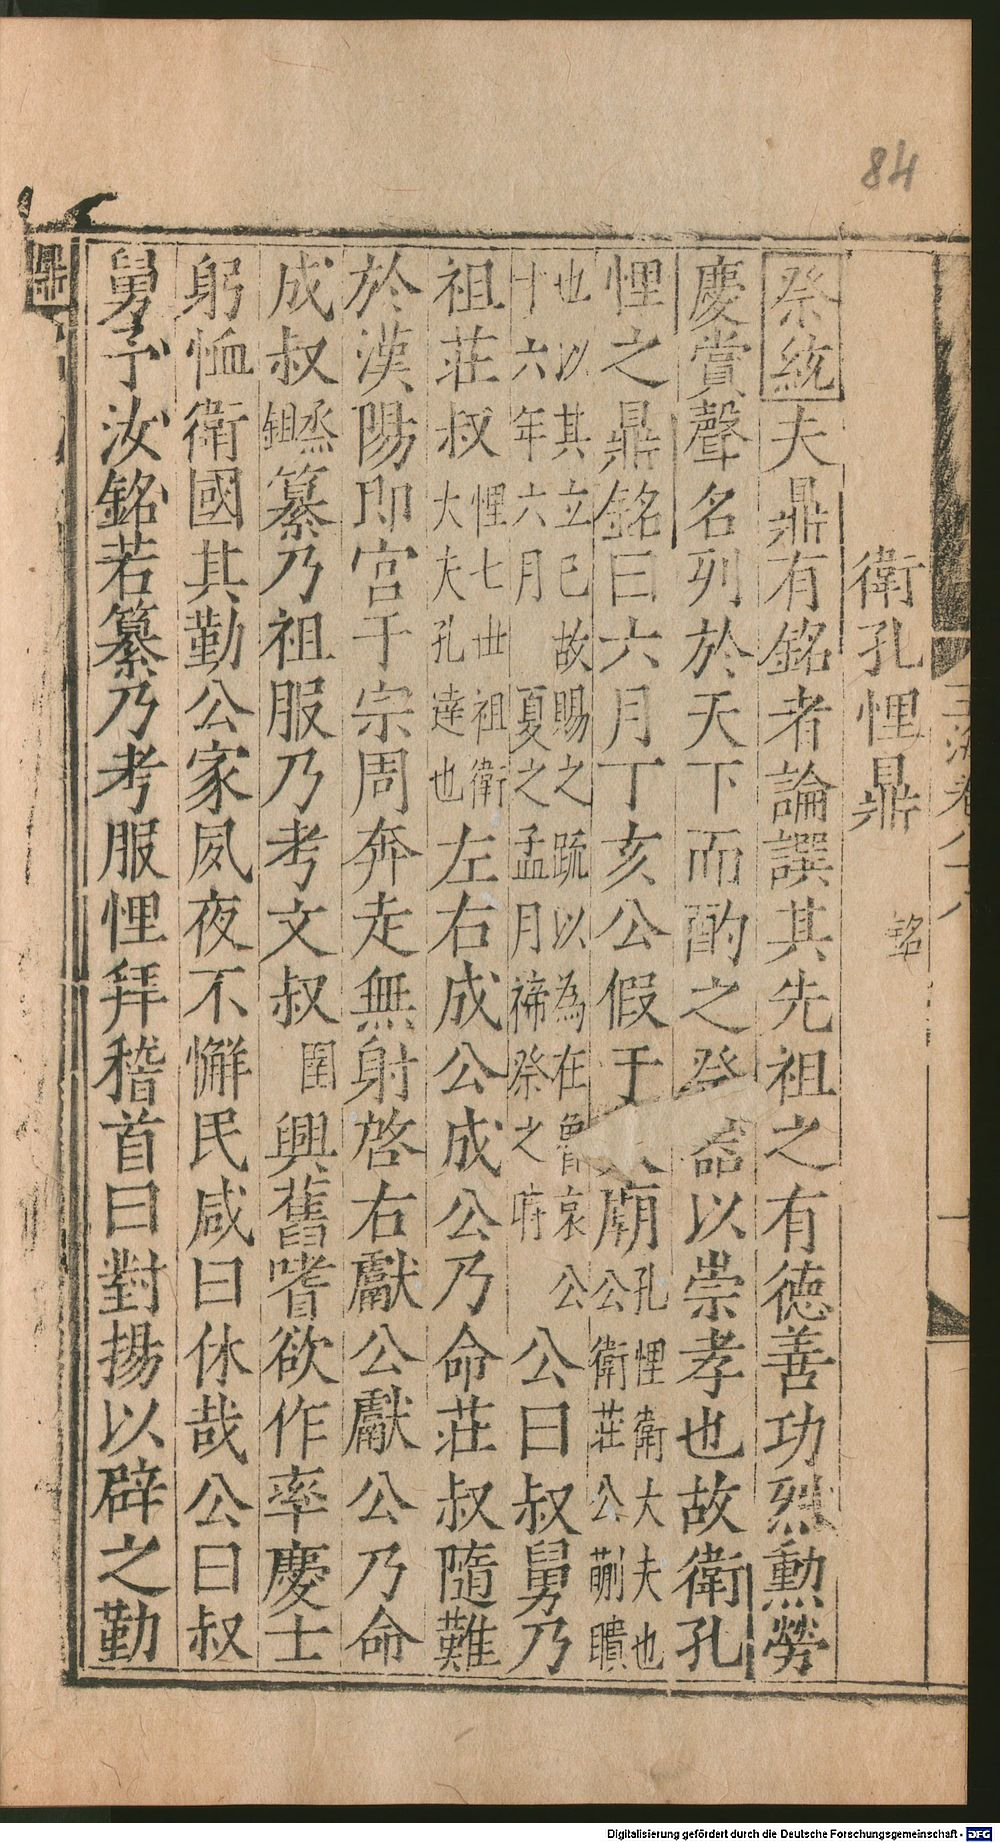 84
衛孔悝鼎 銘
祭統夫鼎有銘者論譔其先祖之有德善功烈勲勞
慶賞聲名列於天下而酌之祭器以崇孝也故衛孔
悝之鼎銘曰六月丁亥公假于廟孔悝衛大夫也公衛莊公蒯聵
也以其立已故賜之疏以為在魯哀公十六年六月夏之孟月禘祭之時公曰叔舅乃
祖莊叔悝七世祖衛大夫孔達也左右成公成公乃命莊叔隨難
於漢陽即宮于宗周奔走無射啓右獻公獻公乃命
成叔烝鉏纂乃祖服乃考文叔圉興舊嗜欲作率慶士
躬恤衛國其勤公家夙夜不懈民咸曰休哉公曰叔
舅予汝銘若纂乃考服悝拜稽首曰對揚以辟之勤
鼎
Digitalisierung gefördert durch die Deutsche Forschungsgemeinschaft - DFG